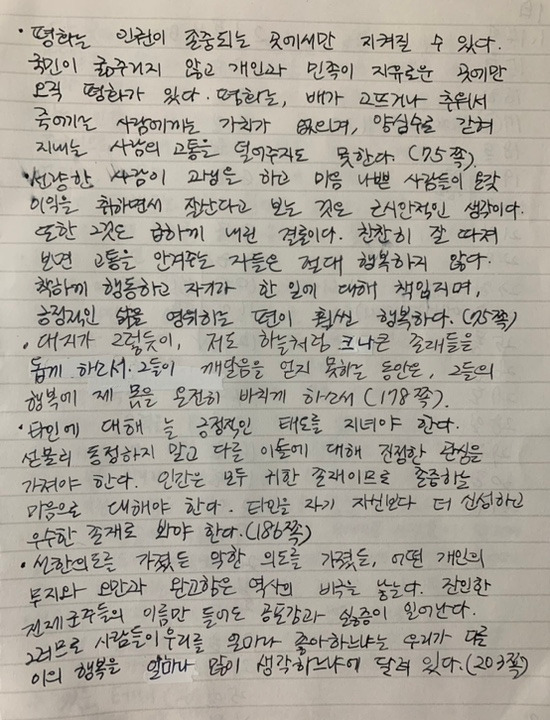 · 평화는 인권이 존중되는 곳에서만 지켜질 수 있다.
국민이 굶주리지 않고 개인과 민족이 자유로운 곳에만
오직 평화가 있다. 평화는, 배가 고프거나 추워서
죽어가는 사람에게는 가치가 없으며, 양심수로 갇혀
지내는 사람의 고통을 덜어주지도 못한다. (75쪽)
· 선량한 사람이 고생을 하고 마음 나쁜 사람들이 온갖
이익을 취하면서 잘산다고 보는 것은 근시안적인 생각이다.
또한 그것은 급하게 내린 결론이다. 찬찬히 잘 따져
보면 고통을 안겨주는 자들은 절대 행복하지 않다.
착하게 행동하고 자기가 한 일에 대해 책임지며,
긍정적인 삶을 영위하는 편이 훨씬 행복하다. (75쪽)
· 대지가 그렇듯이, 저도 하늘처럼 크나큰 존재들을
돕게 하소서. 그들이 깨달음을 얻지 못하는 동안은, 그들의
행복에 제 몸을 온전히 바치게 하소서 (178쪽).
· 타인에 대해 늘 긍정적인 태도를 지녀야 한다.
섣불리 동정하지 말고 다른 이들에 대해 진정한 관심을
가져야 한다. 인간은 모두 귀한 존재이므로 존중하는
마음으로 대해야 한다. 타인을 자기 자신보다 더 신성하고
우수한 존재로 봐야 한다. (186쪽)
· 선한의도를 가졌든 악한 의도를 가졌든, 어떤 개인의
무지와 오만과 완고함은 역사의 비극을 낳는다. 잔인한
전제군주들의 이름만 들어도 공포감과 싫증이 일어난다.
그러므로 사람들이 우리를 얼마나 좋아하느냐는 우리가 다른
이의 행복을 얼마나 많이 생각하느냐에 달려 있다. (203쪽)